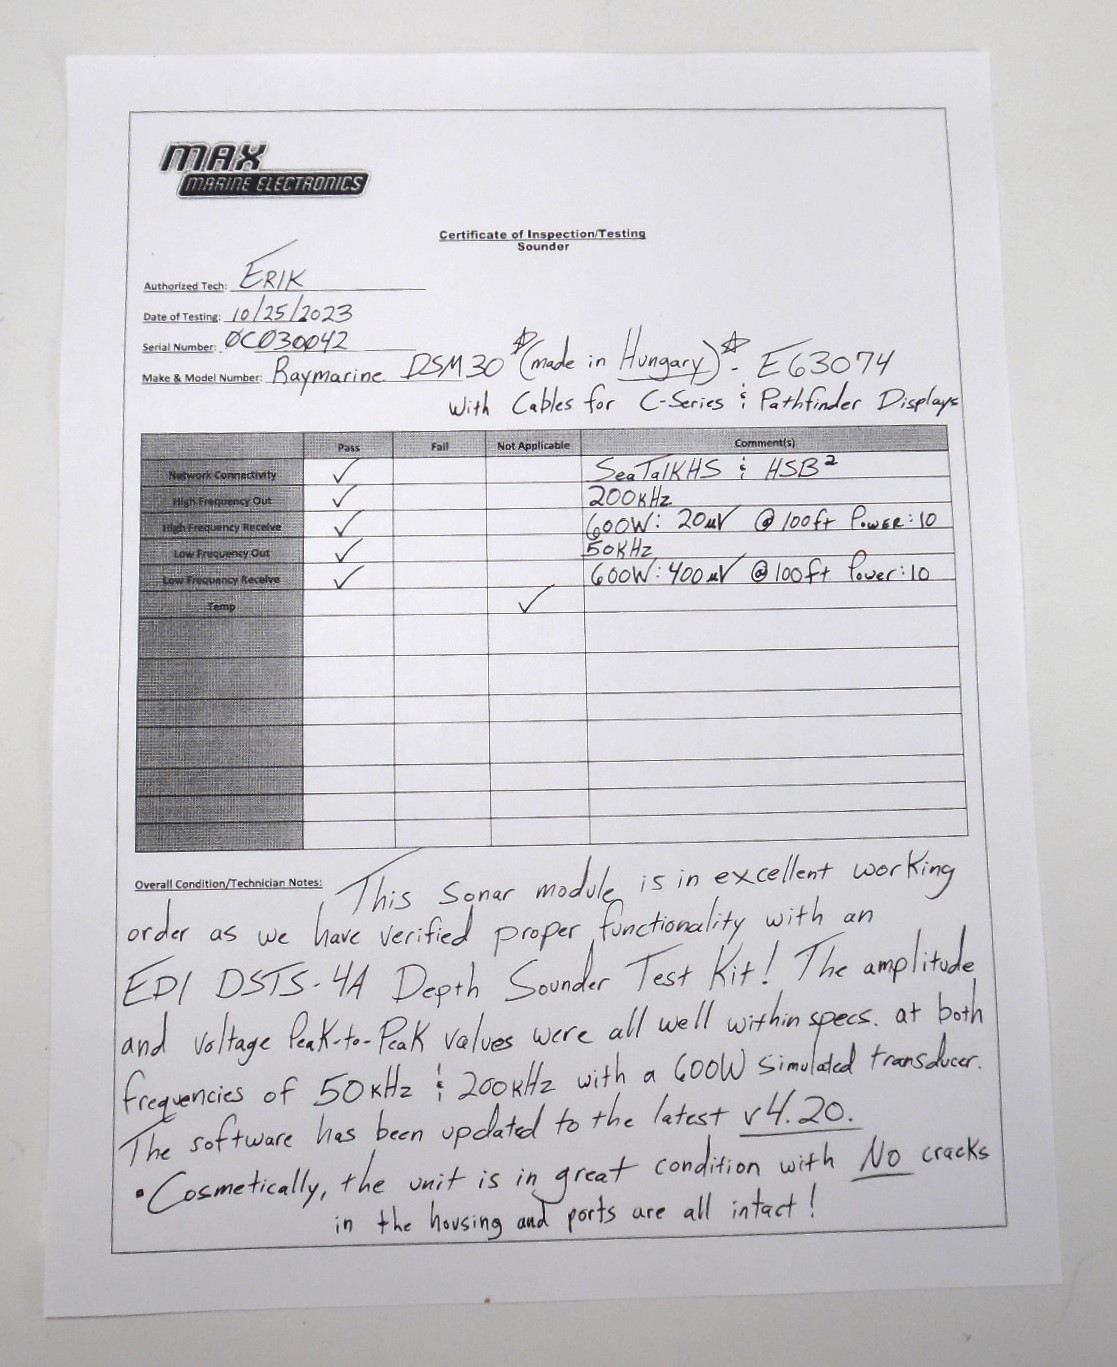 MAX
MARINE ELECTRONICS
Certificate of Inspection/Testing
Sounder
Authorized Tech: ERIK
Date of Testing: 10/25/2023
Serial Number: 0C030042
Make & Model Number: Raymarine DSM30 (made in Hungary) - E63074
With Cables for C-Series & Pathfinder Displays
Pass Fail Not Applicable Comment(s)
Network Connectivity ✓ SeaTalkHS & HSB²
High Frequency Out ✓ 200kHz
High Frequency Receive ✓ 600W: 20uV @ 100ft Power: 10
Low Frequency Out ✓ 50kHz
Low Frequency Receive ✓ 600W: 400uV @ 100ft Power: 10
Temp ✓
Overall Condition/Technician Notes: This sonar module is in excellent working
order as we have verified proper functionality with an
EDI DSTS-4A Depth Sounder Test Kit! The amplitude
and voltage Peak-to-Peak values were all well within specs. at both
frequencies of 50kHz & 200kHz with a 600W simulated transducer.
The software has been updated to the latest v4.20.
• Cosmetically, the unit is in great condition with No cracks
in the housing and ports are all intact!